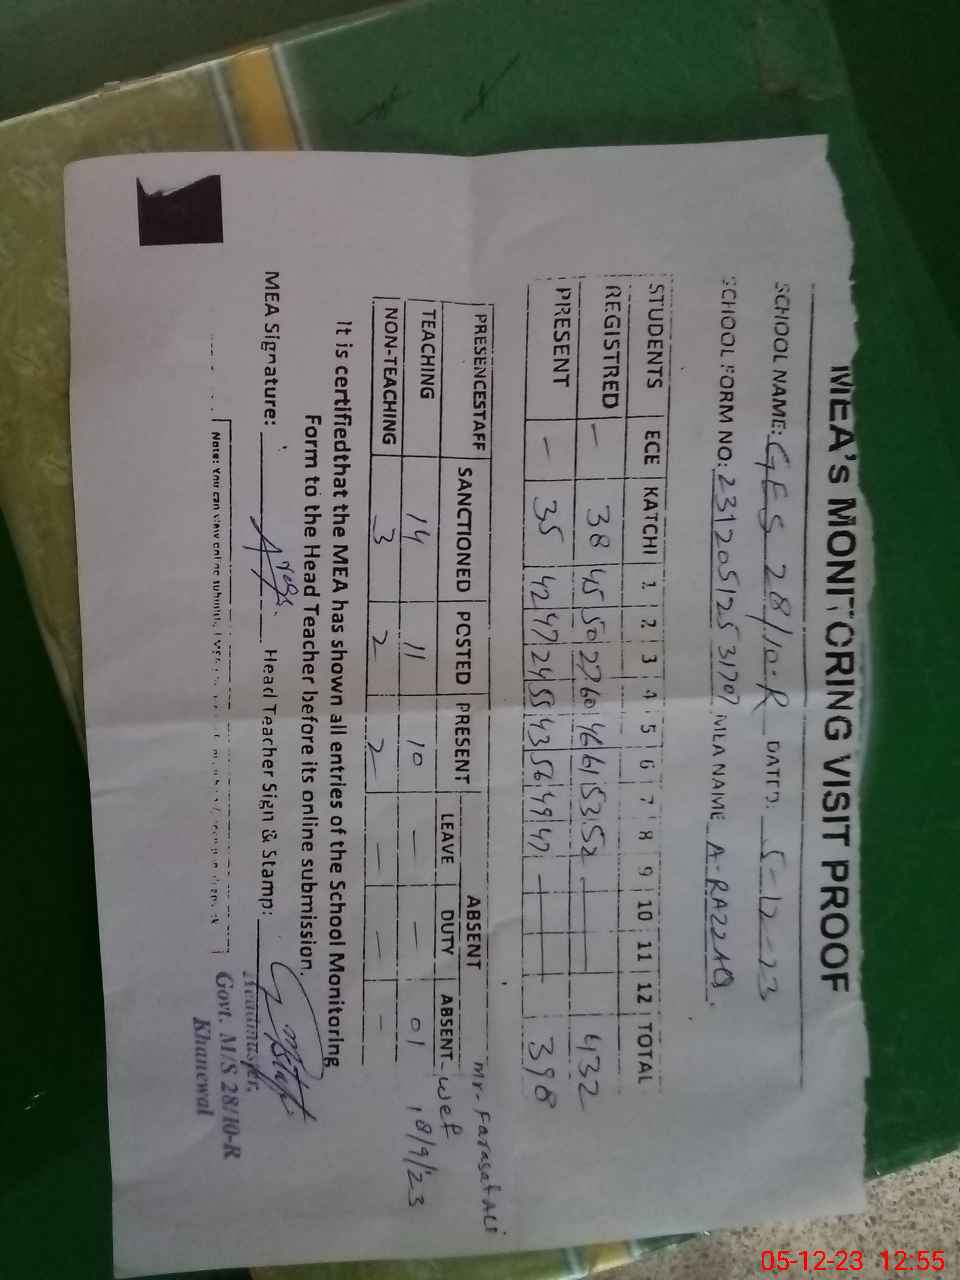 MEA's MONITORING VISIT PROOF
SCHOOL NAME: GES 28/10-R DATED: 5-12-23
SCHOOL FORM NO: 23120512531707 MEA NAME A-RAZZAQ
STUDENTS ECE KATCHI 1 2 3 4 5 6 7 8 9 10 11 12 TOTAL
REGISTRED — 38 45 50 27 60 46 61 53 52 — 432
PRESENT — 35 42 47 24 55 43 56 49 47 — 398
Mr. Farasat Ali
PRESENCESTAFF SANCTIONED POSTED PRESENT ABSENT
LEAVE DUTY ABSENT - wef
TEACHING 14 11 10 — — 01 18/9/23
NON-TEACHING 3 2 2 — — -
It is certifiedthat the MEA has shown all entries of the School Monitoring
Form to the Head Teacher before its online submission.
MEA Signature: Head Teacher Sign & Stamp:
Headmaster,
Govt. M/S 28/10-R
Khanewal
Note: You can view online submitted
05-12-23 12:55